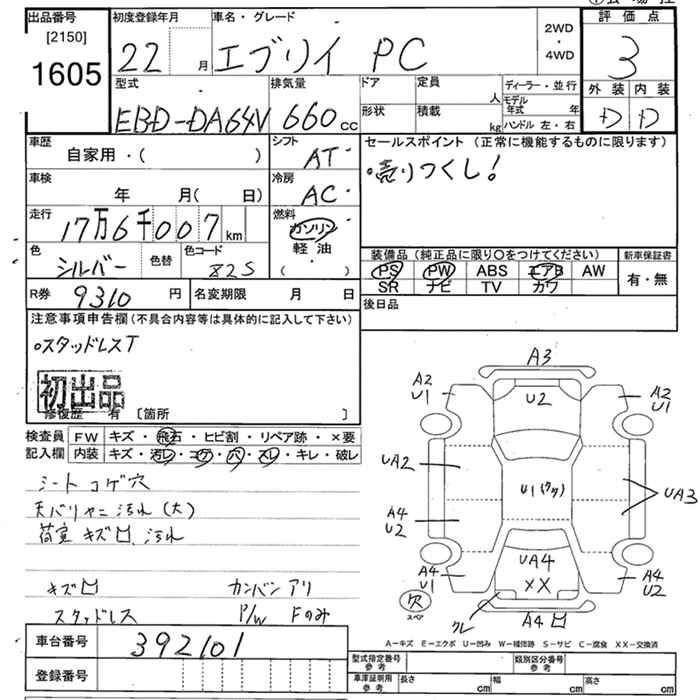 出品番号
[2150]
1605
初度登録年月
22 月
車名・グレード
エブリイ PC
2WD
・
4WD
評価点
3
外装 内装
D D
型式
EBD-DA64V
排気量
660 cc
ドア
定員
人
形状
積載
kg
ディーラー・並行
モデル
年式 年
ハンドル 左・右
車歴
自家用・( )
シフト
AT
車検
年 月( 日)
冷房
AC
走行
17万6千007 km
燃料
ガソリン
軽油
( )
色
シルバー
色替
色コード
Z2S
R券 9310 円
名変期限 月 日
セールスポイント (正常に機能するものに限ります)
売りつくし!
装備品 (純正品に限り○をつけてください)
新車保証書
PS PW ABS エアB AW
SR ナビ TV カワ
有・無
後日品
注意事項申告欄 (不具合内容等は具体的に記入して下さい)
○スタッドレスT
初出品
修復歴 有 [箇所 ]
検査員
記入欄
FW キズ・飛石・ヒビ割・リペア跡・×要
内装 キズ・汚レ・コゲ・穴・スレ・キレ・破レ
シート コゲ穴
天バリヤニ 汚れ (大)
荷室 キズ凹 汚れ
キズ凹 カンバン アリ
スタッドレス P/W Fのみ
車台番号 392101
登録番号
A3
A2
U1
U2
A2
U1
UA2
U1 (ワク)
UA3
A4
U2
UA4
XX
A4
U1
A4
U2
欠
スペア
クレ
A4 凹
A-キズ E-エクボ U-凹み W-補修跡 S-サビ C-腐食 XX-交換済
型式指定番号
参考
類別区分番号
参考
車庫証明用
参考
長さ cm 幅 cm 高さ cm